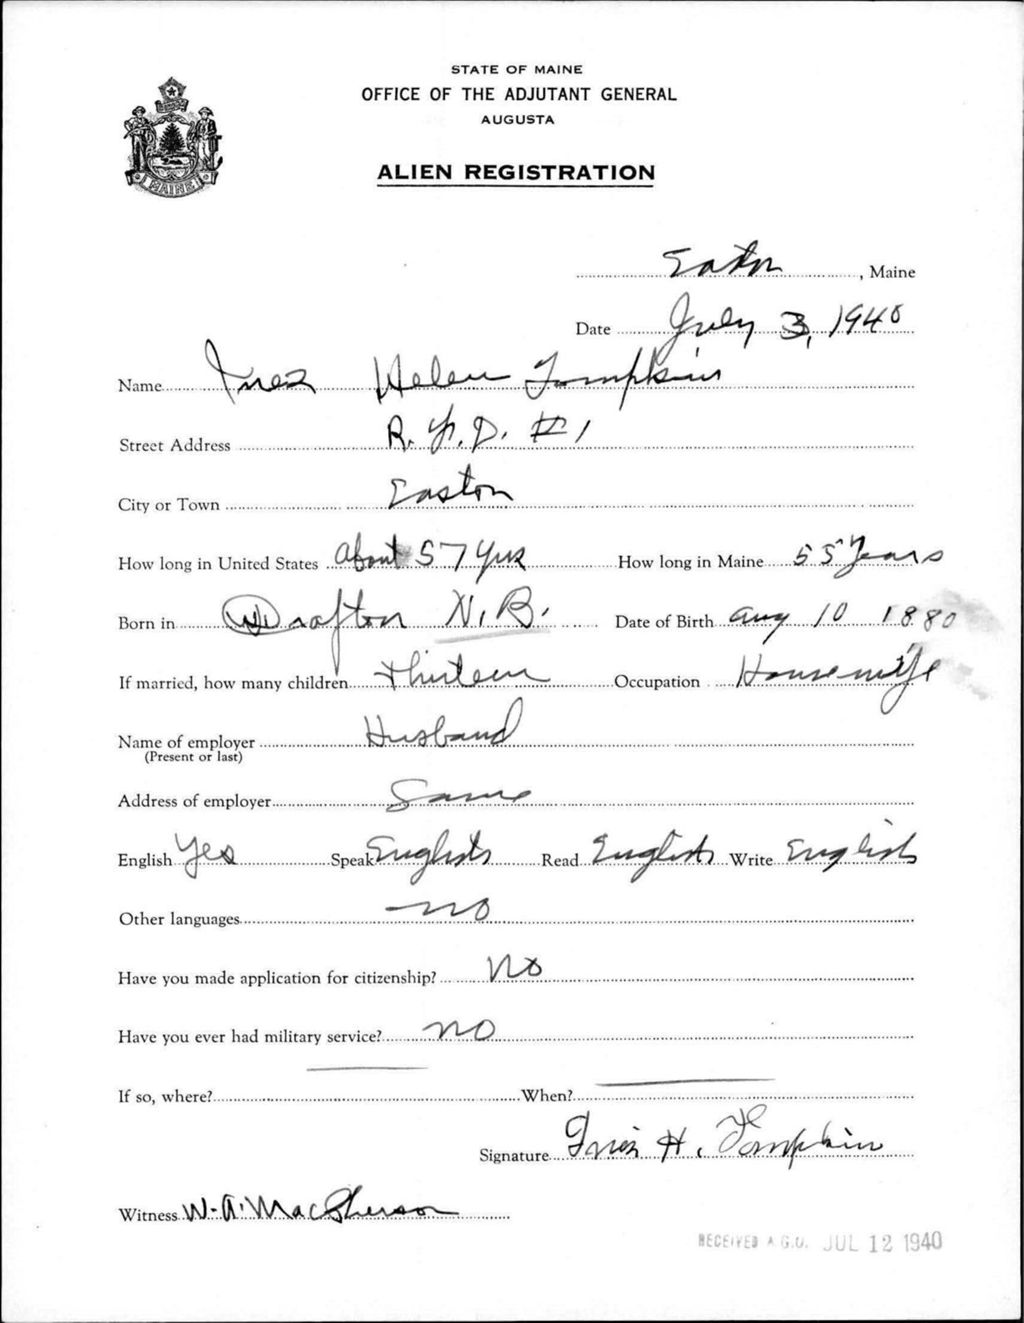 STATE OF MAINE
OFFICE OF THE ADJUTANT GENERAL
AUGUSTA
MAINE
ALIEN REGISTRATION
Easton, Maine
Date July 3, 1940
Name Inez Helen Tompkins
Street Address R.F.D. #1
City or Town Easton
How long in United States About 57 yrs How long in Maine 55 Years
Born in N.B. Date of Birth Aug 10 1880
If married, how many children Thirteen Occupation Housewife
Name of employer Husband
(Present or last)
Address of employer Same
English Yes Speak English Read English Write English
Other languages no
Have you made application for citizenship? No
Have you ever had military service? no
If so, where? When?
Signature Inez H. Tompkins
Witness W. A. MacPherson
RECEIVED A.G.O. JUL 12 1940